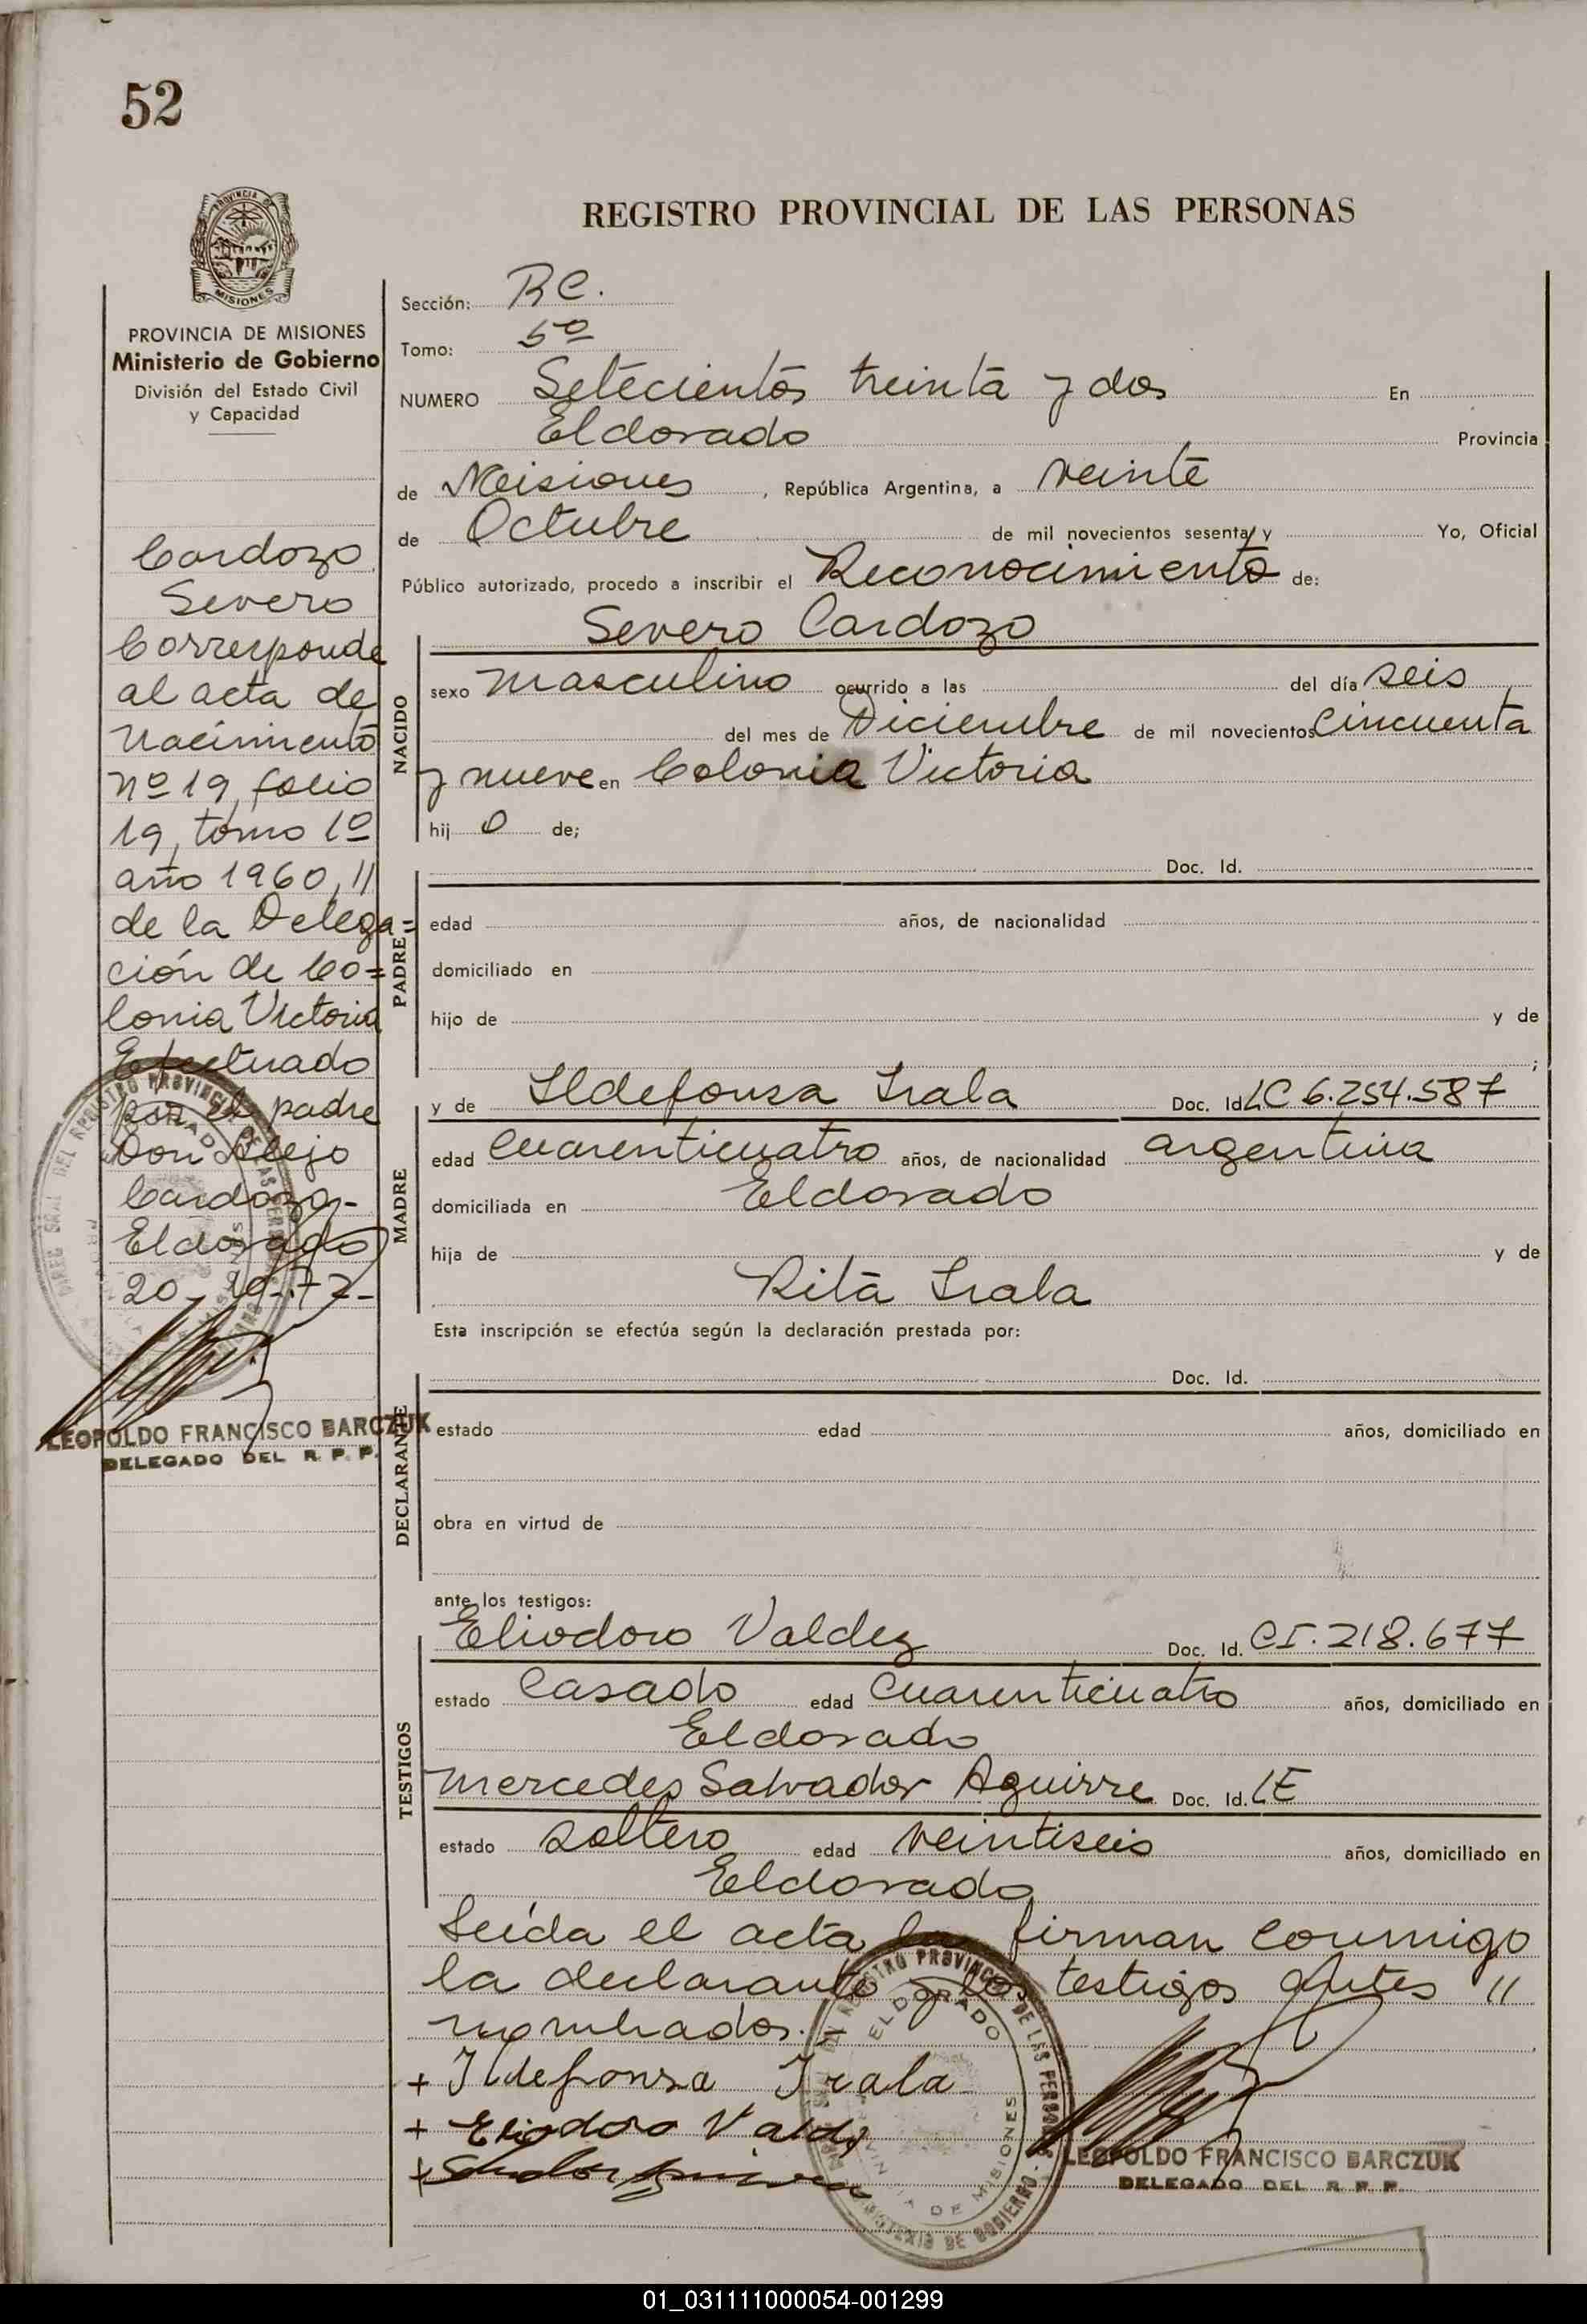 52
PROVINCIA DE
MISIONES
PROVINCIA DE MISIONES
Ministerio de Gobierno
División del Estado Civil
y Capacidad
Cardozo
Severo
Corresponde
al acta de
Nacimiento
nº 19, folio
19, tomo 1º
año 1960, //
de la Delega=
ción de Co=
lonia Victoria
Efectuado
por el padre
Don Alejo
Cardozo-
Eldorado
20-10-77-
LEOPOLDO FRANCISCO BARCZUK
DELEGADO DEL R. P. P.
REGISTRO PROVINCIAL DE LAS PERSONAS
Sección: RC.
Tomo: 5º
NUMERO Setecientos treinta y dos En
Eldorado Provincia
de Misiones, República Argentina, a veinte
de Octubre de mil novecientos sesenta y Yo, Oficial
Público autorizado, procedo a inscribir el Reconocimiento de:
Severo Cardozo
NACIDO
sexo masculino ocurrido a las del día seis
del mes de Diciembre de mil novecientos Cincuenta
y nueve en Colonia Victoria
hij o de;
PADRE
Doc. Id.
edad años, de nacionalidad
domiciliado en
hijo de y de
;
MADRE
y de Ildefonsa Irala Doc. Id. LC 6.254.587
edad Cuarenticuatro años, de nacionalidad argentina
domiciliada en Eldorado
hija de y de
Rita Irala
Esta inscripción se efectúa según la declaración prestada por:
DECLARANTE
Doc. Id.
estado edad años, domiciliado en
obra en virtud de
ante los testigos:
TESTIGOS
Eliodoro Valdez Doc. Id. CI. 218.677
estado Casado edad Cuarenticuatro años, domiciliado en
Eldorado
Mercedes Salvador Aguirre Doc. Id. LE
estado soltero edad veintiseis años, domiciliado en
Eldorado
Leída el acta la firman conmigo
la declarante y los testigos antes //
nombrados.
+ Ildefonsa Irala
+ Eliodoro Valdez
+
ELDORADO
PROVINCIA DE MISIONES
LEOPOLDO FRANCISCO BARCZUK
DELEGADO DEL R. P. P.
01_031111000054-001299